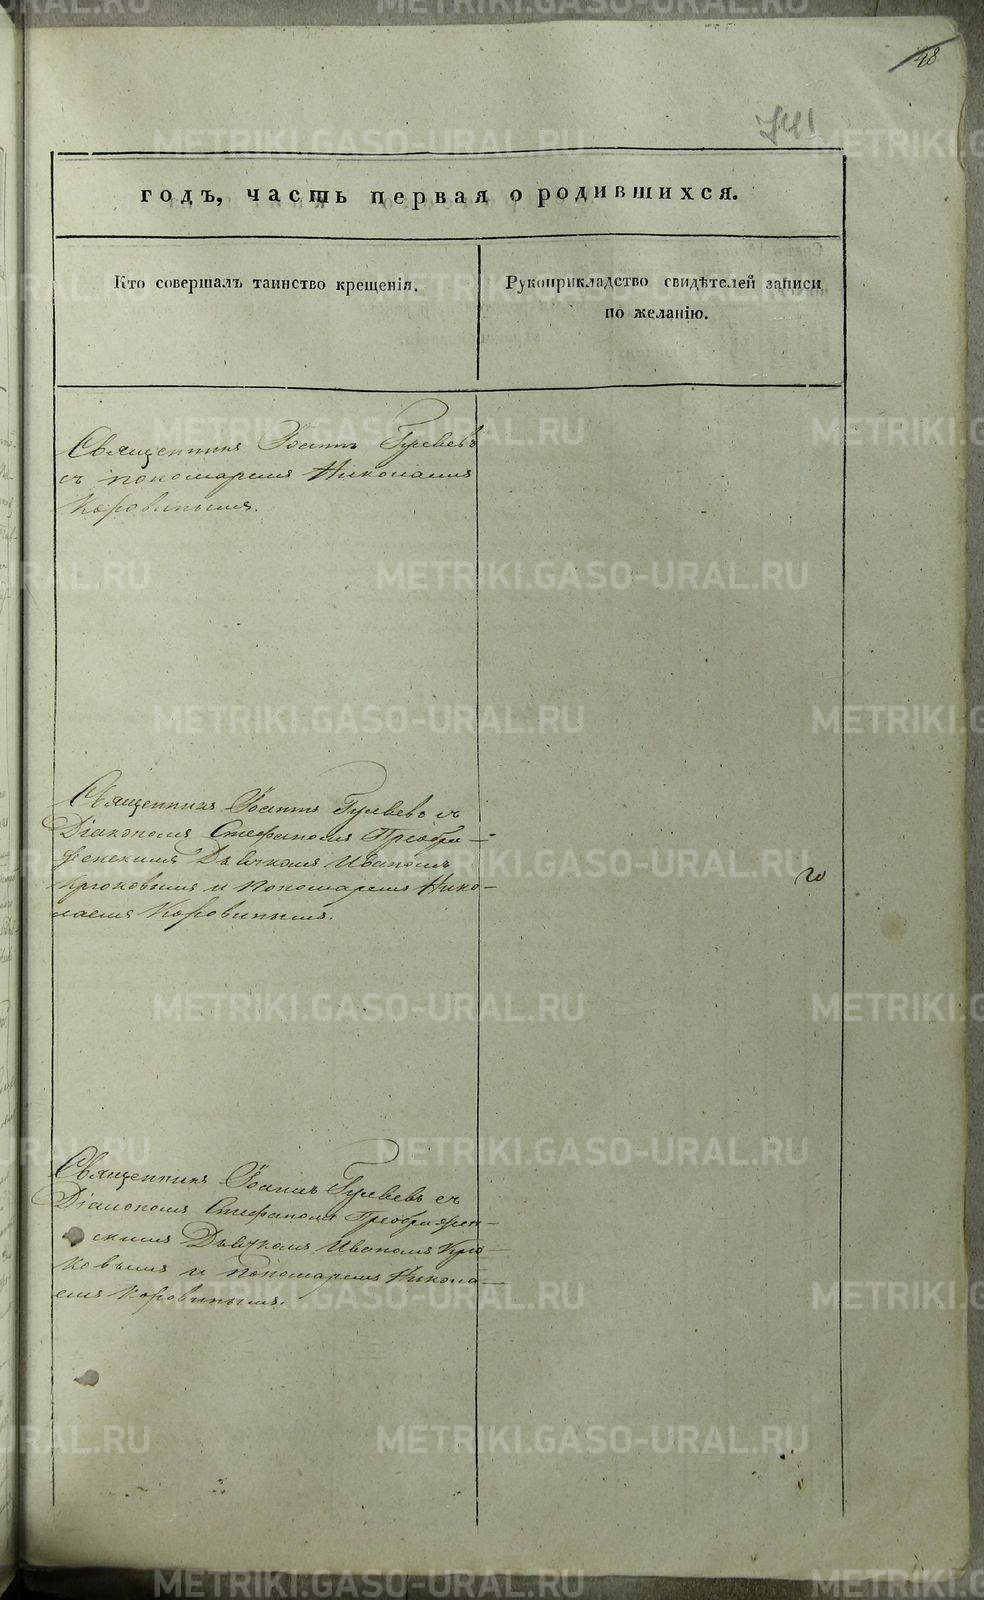 48
741
годъ, часть первая о родившихся.
Кто совершалъ таинство крещенія.
Рукоприкладство свидѣтелей записи
по желанію.
Священникъ Іоаннъ Гулевъ
съ пономаремъ Николаемъ
Коровинымъ.
Священникъ Іоаннъ Гулевъ съ
Діакономъ Стефаномъ Преобра-
женскимъ Дьячкомъ Иваномъ
Крюковымъ и Пономаремъ Нико-
лаемъ Коровинымъ.
Священникъ Іоаннъ Гулевъ съ
Діакономъ Стефаномъ Преображен-
скимъ Дьячкомъ Иваномъ Крю-
ковымъ и Пономаремъ Никола-
емъ Коровинымъ.
METRIKI.GASO-URAL.RU